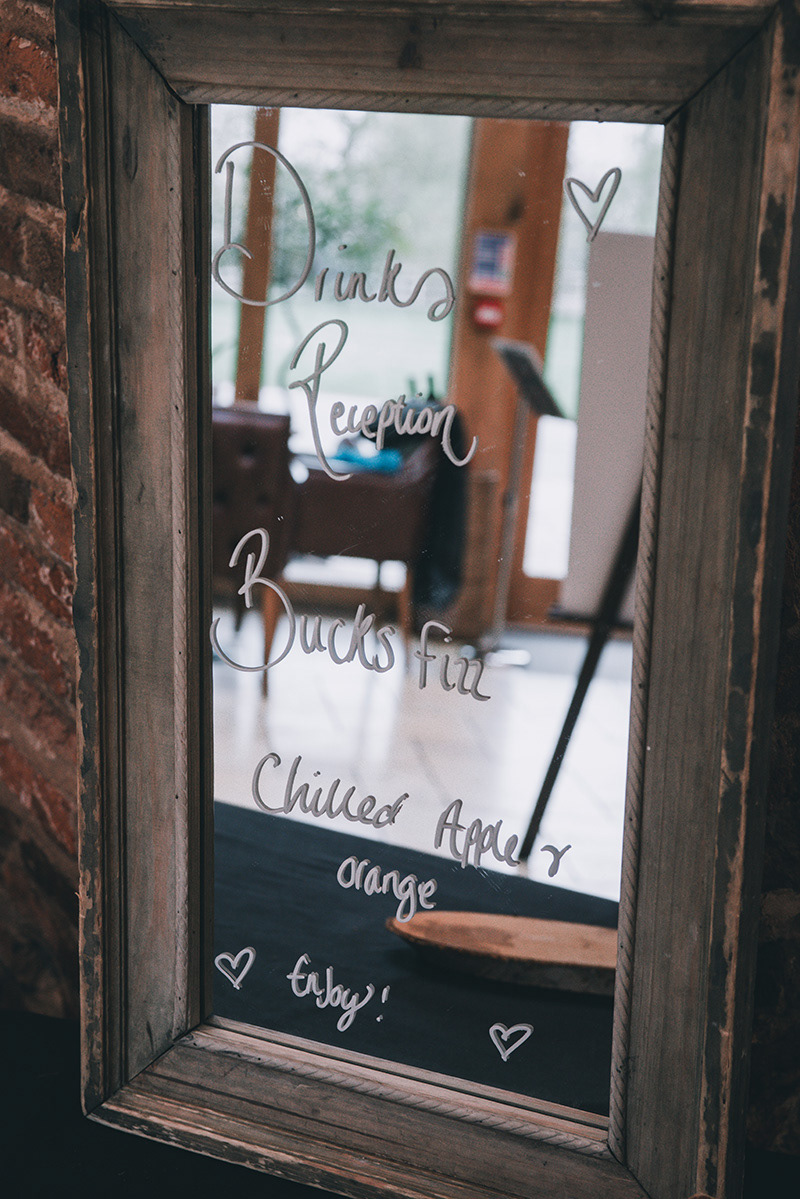 Drinks
Reception
Bucks fizz
Chilled Apple &
orange
Enjoy!